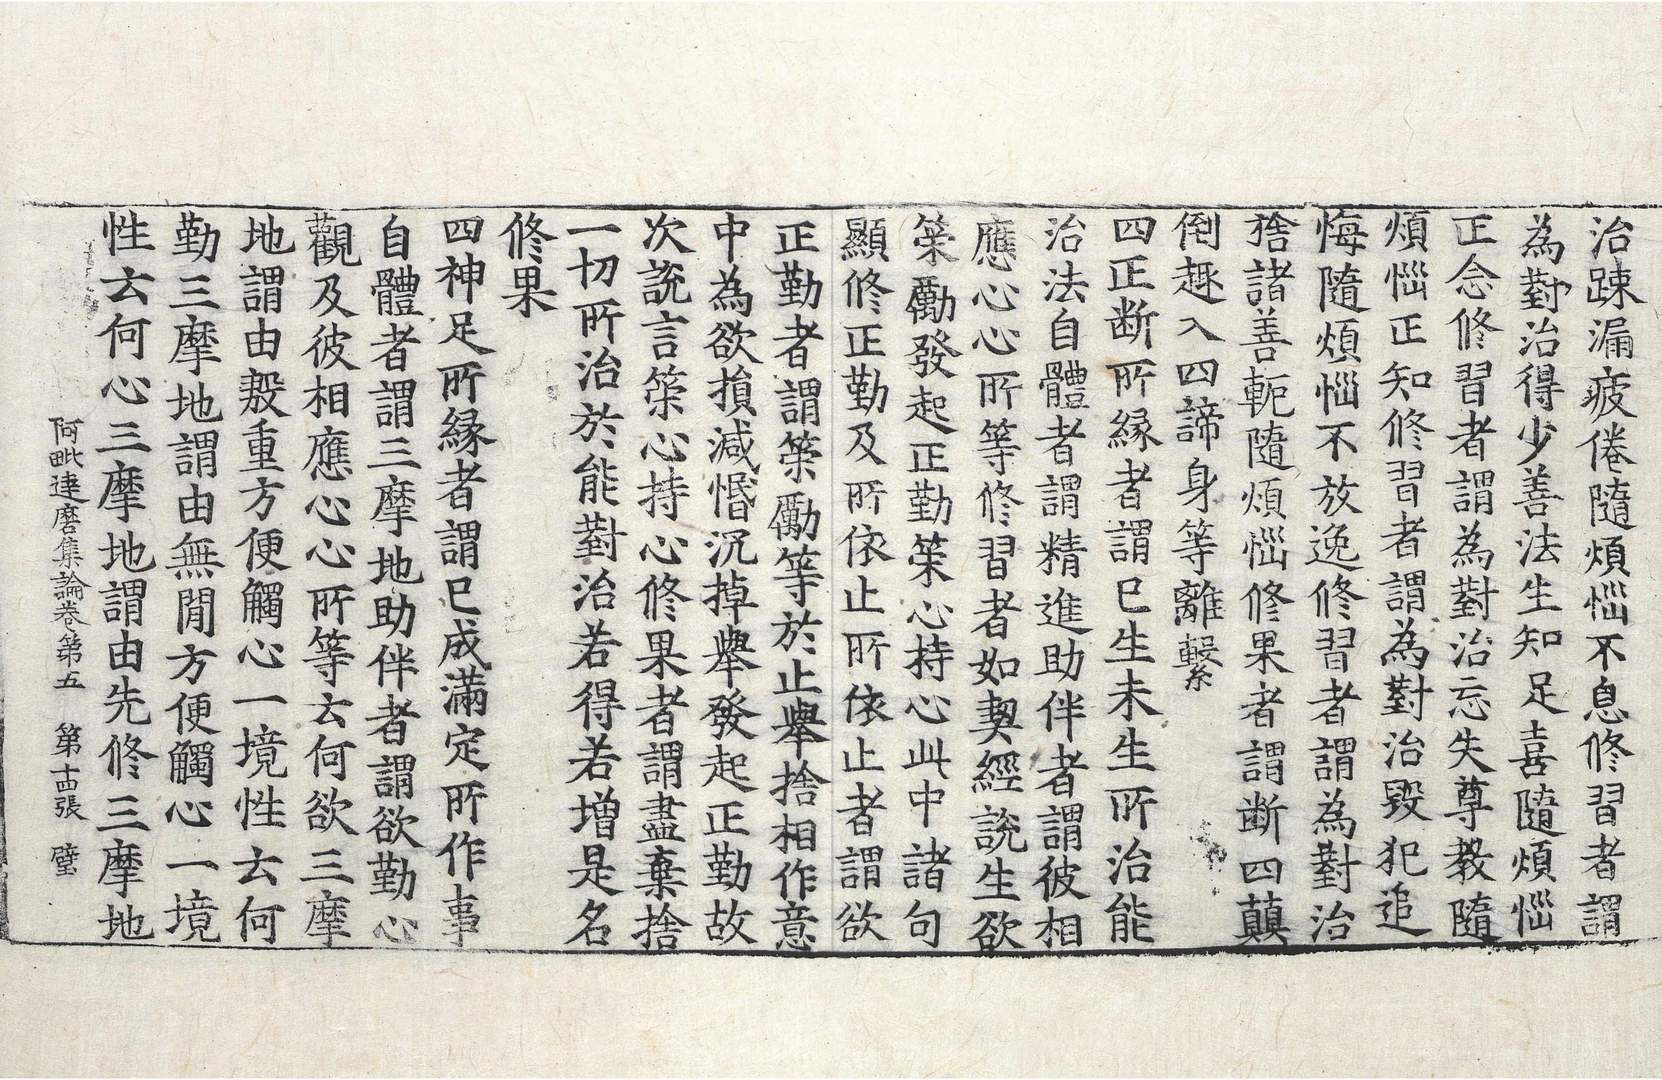 治踈漏疲倦隨煩惱不息修習者謂
為對治得少善法生知足喜隨煩惱
正念修習者謂為對治忘失尊教隨
煩惱正知修習者謂為對治毀犯追
悔隨煩惱不放逸修習者謂為對治
捨諸善軛隨煩惱修果者謂斷四顛
倒趣入四諦身等離繫
四正断所縁者謂已生未生所治能
治法自體者謂精進助伴者謂彼相
應心心所等修習者如契經說生欲
策勵發起正勤策心持心此中諸句
顯修正勤及所依止所依止者謂欲
正勤者謂策勵等於止舉捨相作意
中為欲損減惛沉掉舉發起正勤故
次說言策心持心修果者謂盡棄捨
一切所治於能對治若得若增是名
修果
四神足所縁者謂已成滿定所作事
自體者謂三摩地助伴者謂欲勤心
觀及彼相應心心所等云何欲三摩
地謂由殷重方便觸心一境性云何
勤三摩地謂由無間方便觸心一境
性云何心三摩地謂由先修三摩地
阿毗達磨集論卷第五 第十四張 璧